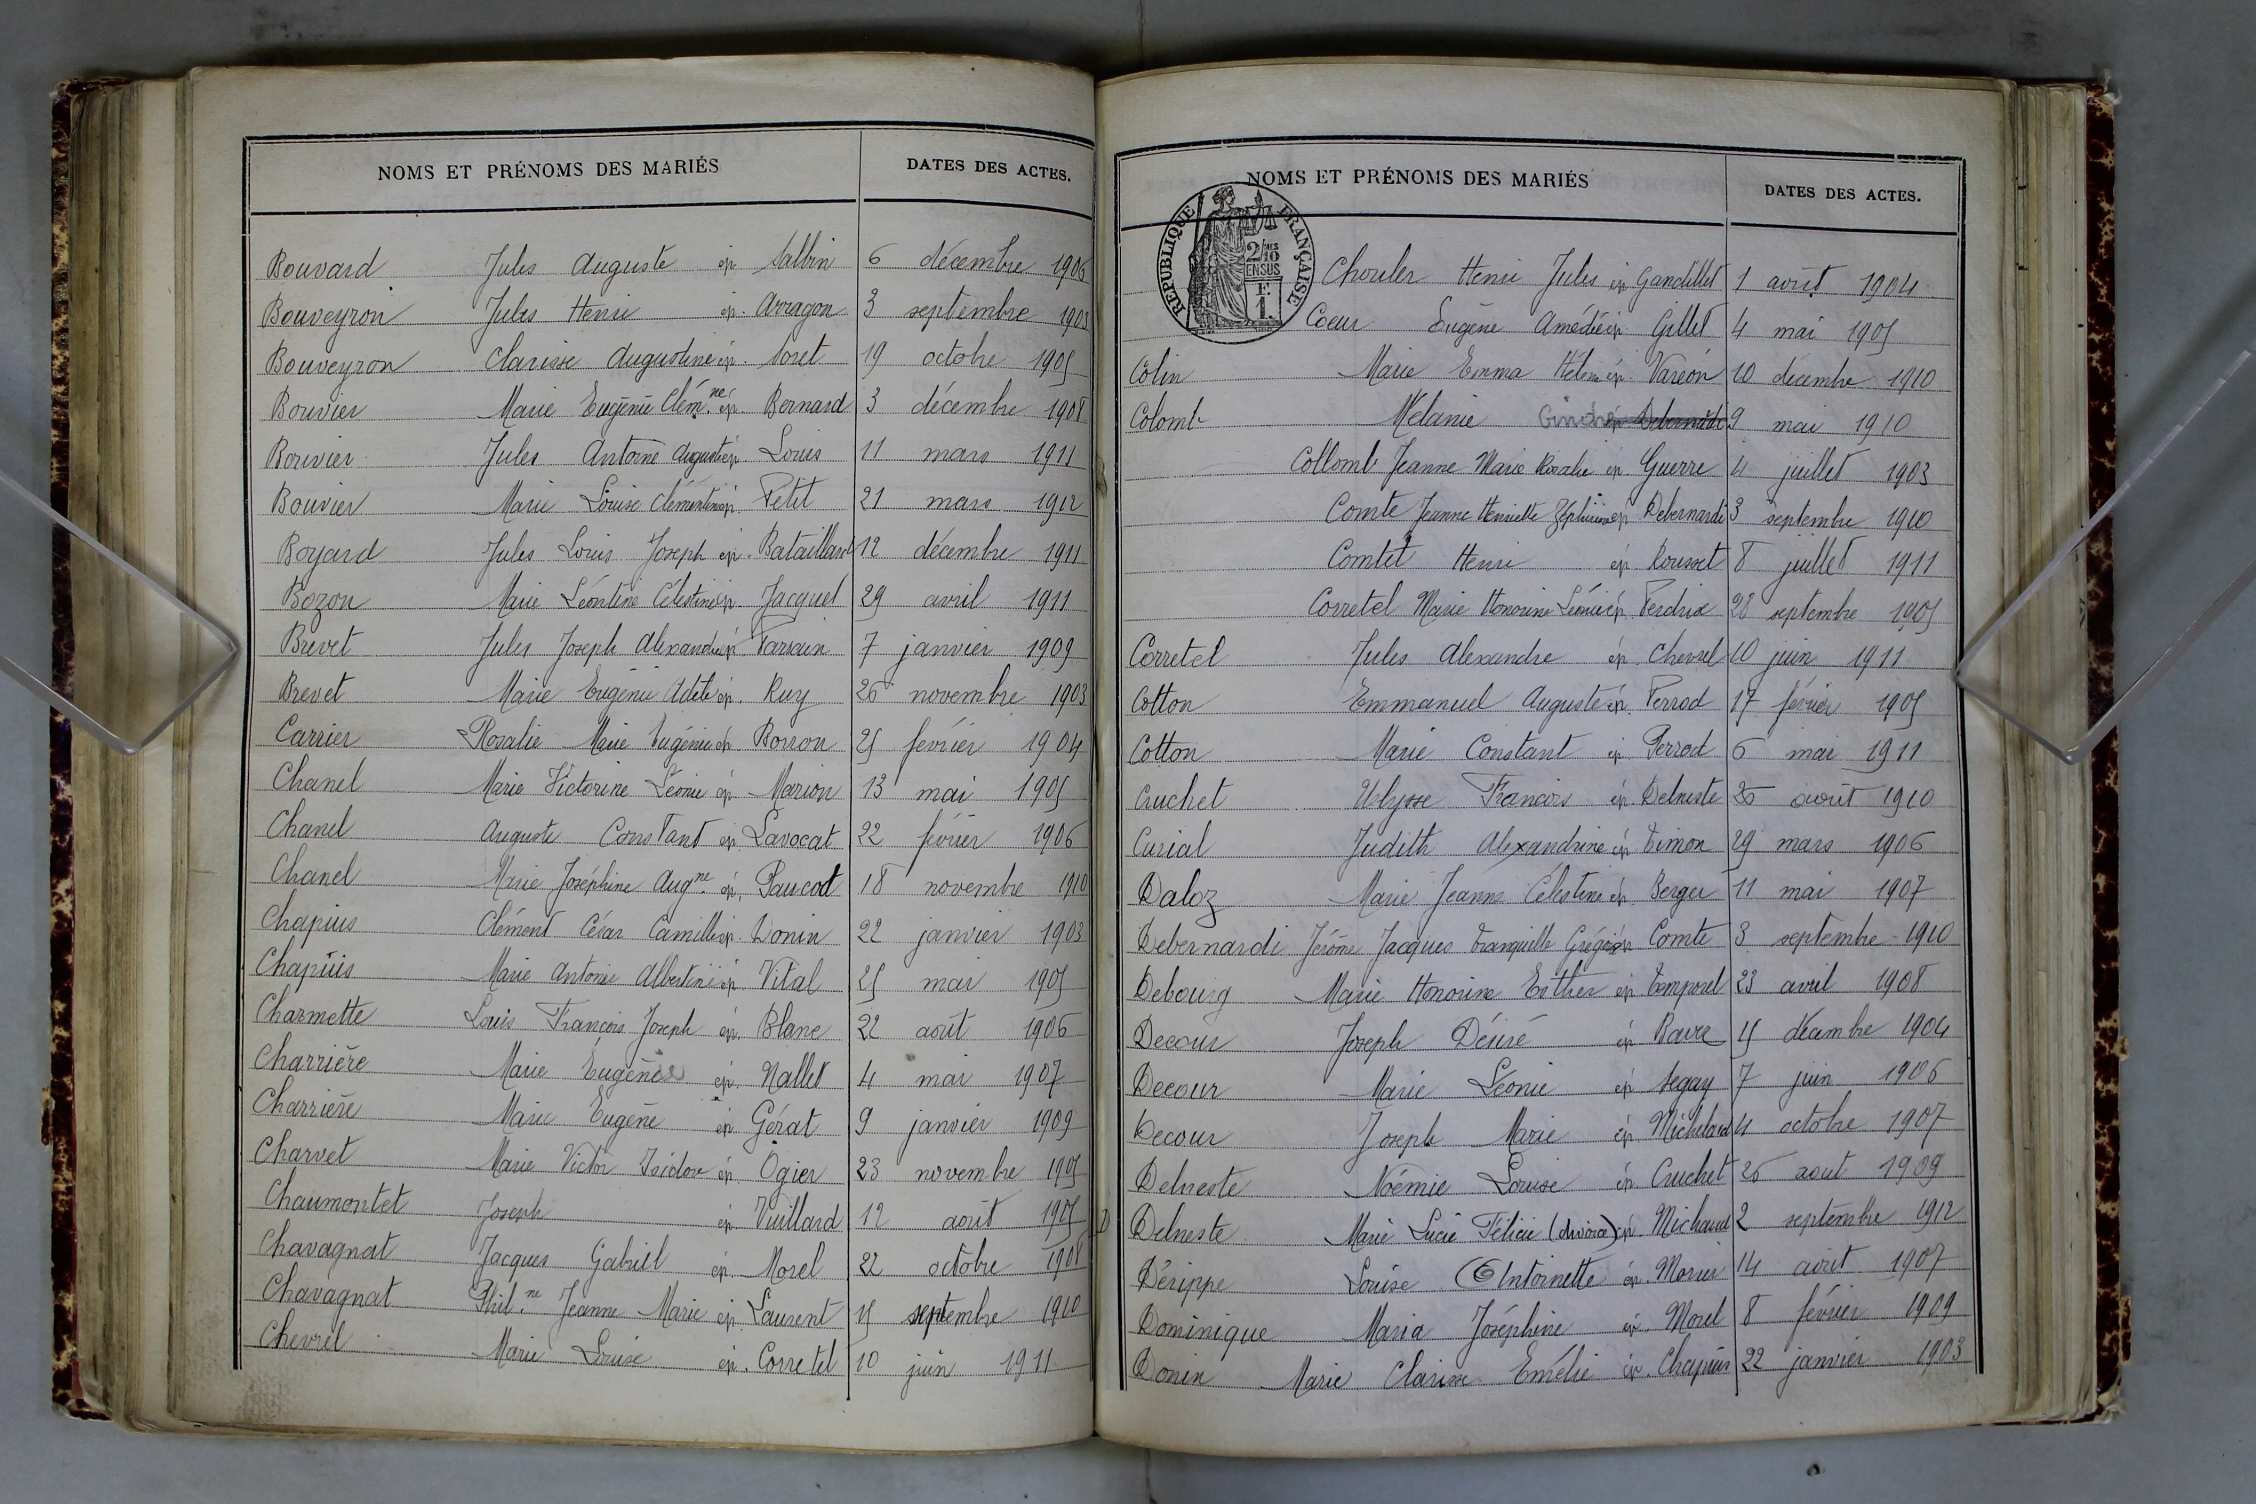 NOMS ET PRÉNOMS DES MARIÉS DATES DES ACTES.
Bouvard Jules Auguste ép. Salbin 6 décembre 1906
Bouveyron Jules Henri ép. Arragon 3 septembre 1903
Bouveyron Clarisse Augustine ép. Soret 19 octobre 1905
Bouvier Marie Eugénie Clém.ne ép. Bernard 3 décembre 1908
Bouvier Jules Antoine Auguste ép. Louis 11 mars 1911
Bouvier Marie Louise Clémentine ép. Petit 21 mars 1912
Boyard Jules Louis Joseph ép. Bataillard 12 décembre 1911
Bozon Marie Léontine Célestine ép. Jacquet 29 avril 1911
Brevet Jules Joseph Alexandre ép. 7 janvier 1909
Brevet Marie Eugénie Adèle ép. Ruy 26 novembre 1903
Carrier Rosalie Marie Eugénie ép. Borron 25 février 1904
Chanel Marie Victorine Léonie ép. Marion 13 mai 1905
Chanel Auguste Constant ép. Lavocat 22 février 1906
Chanel Marie Joséphine Aug.ne ép. Paucod 18 novembre 1910
Chapuis Clément César Camille ép. Donin 22 janvier 1903
Chapuis Marie Antonie Albertine ép. Vital 25 mai 1905
Charmette Louis François Joseph ép. Blanc 22 août 1906
Charrière Marie Eugénie ép. Nallet 4 mai 1907
Charrière Marie Eugène ép. Gérat 9 janvier 1909
Charvet Marie Victor Isidore ép. Ogier 23 novembre 1905
Chaumontet Joseph ép. Vuillard 12 août 1905
Chavagnat Jacques Gabriel ép. Morel 22 octobre 1908
Chavagnat Phil.ne Jeanne Marie ép. Laurent 15 septembre 1910
Chevrel Marie Louise ép. Corretel 10 juin 1911
NOMS ET PRÉNOMS DES MARIÉS DATES DES ACTES.
RÉPUBLIQUE FRANÇAISE
2/10MES
EN SUS
F.
1.
Chouler Henri Jules ép. Gandillet 1 août 1904
Coeur Eugène Amédée ép. Gillet 4 mai 1905
Colin Marie Emma Hélène ép. Varéon 10 décembre 1910
Colomb Mélanie ép. Debernardi 9 mai 1910
Collomb Jeanne Marie Rosalie ép. Guerre 4 juillet 1903
Comte Jeanne Henriette Zéphirine ép. Debernardi 3 septembre 1910
Comtet Henri ép. Rousset 8 juillet 1911
Corretel Marie Honorine Léonie ép. Perdrix 28 septembre 1905
Corretel Jules Alexandre ép. Chevrel 10 juin 1911
Cotton Emmanuel Auguste ép. Perrod 17 février 1905
Cotton Marie Constant ép. Perrod 6 mai 1911
Cruchet Ulysse François ép. Delneste 26 août 1910
Curial Judith Alexandrine ép. Timon 29 mars 1906
Daloz Marie Jeanne Célestine ép. Berger 11 mai 1907
Debernardi Jérôme Jacques Tranquille ép. Comte 3 septembre 1910
Debourg Marie Honorine Esther ép. Temporel 23 avril 1908
Decour Joseph Désiré ép. Bavre 15 décembre 1904
Decour Marie Léonie ép. Segay 7 juin 1906
Decour Joseph Marie ép. Michelard 4 octobre 1907
Delneste Noémie Louise ép. Cruchet 26 août 1909
D Delneste Marie Lucie Félicie (divorce) ép. Michaud 2 septembre 1912
Dérippe Louise Antoinette ép. Morier 14 août 1907
Dominique Maria Joséphine ép. Morel 8 février 1909
Donin Marie Clarisse Emélie ép. Chapuis 22 janvier 1903